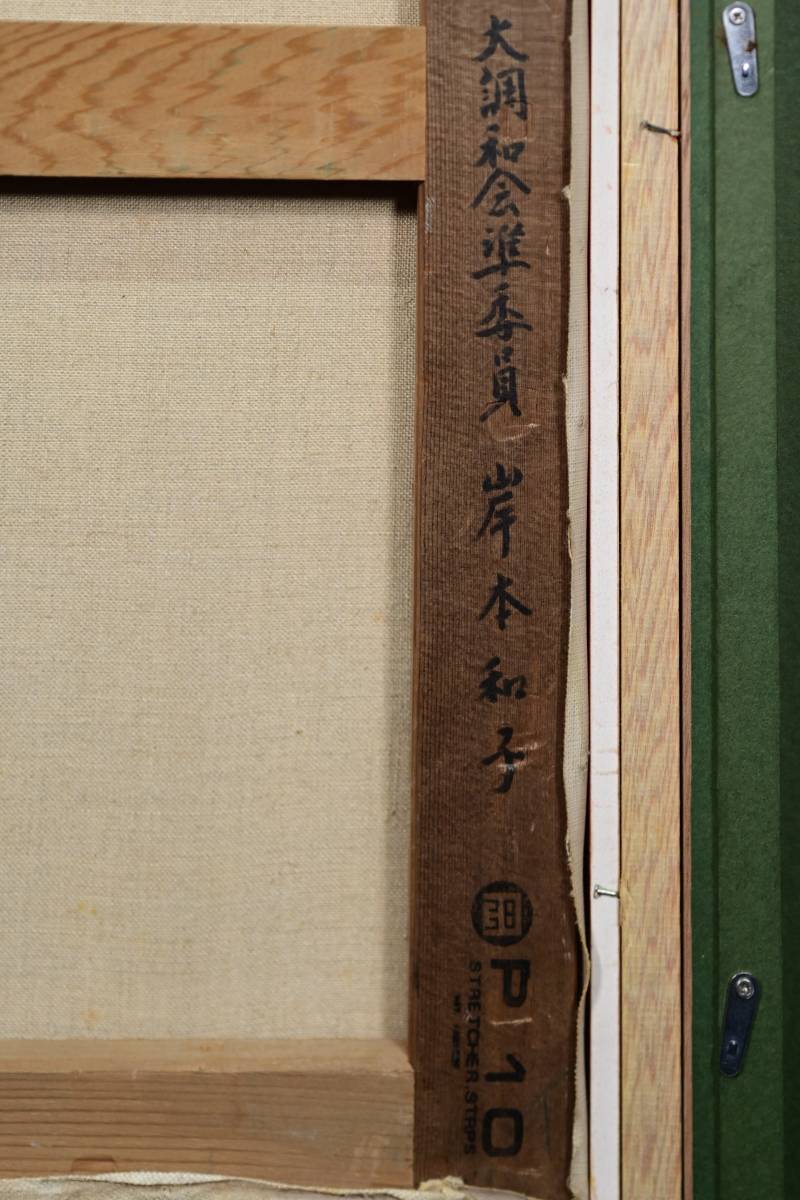 大調和会準委員 岸本和子
P 10
STRETCHER.STRPS